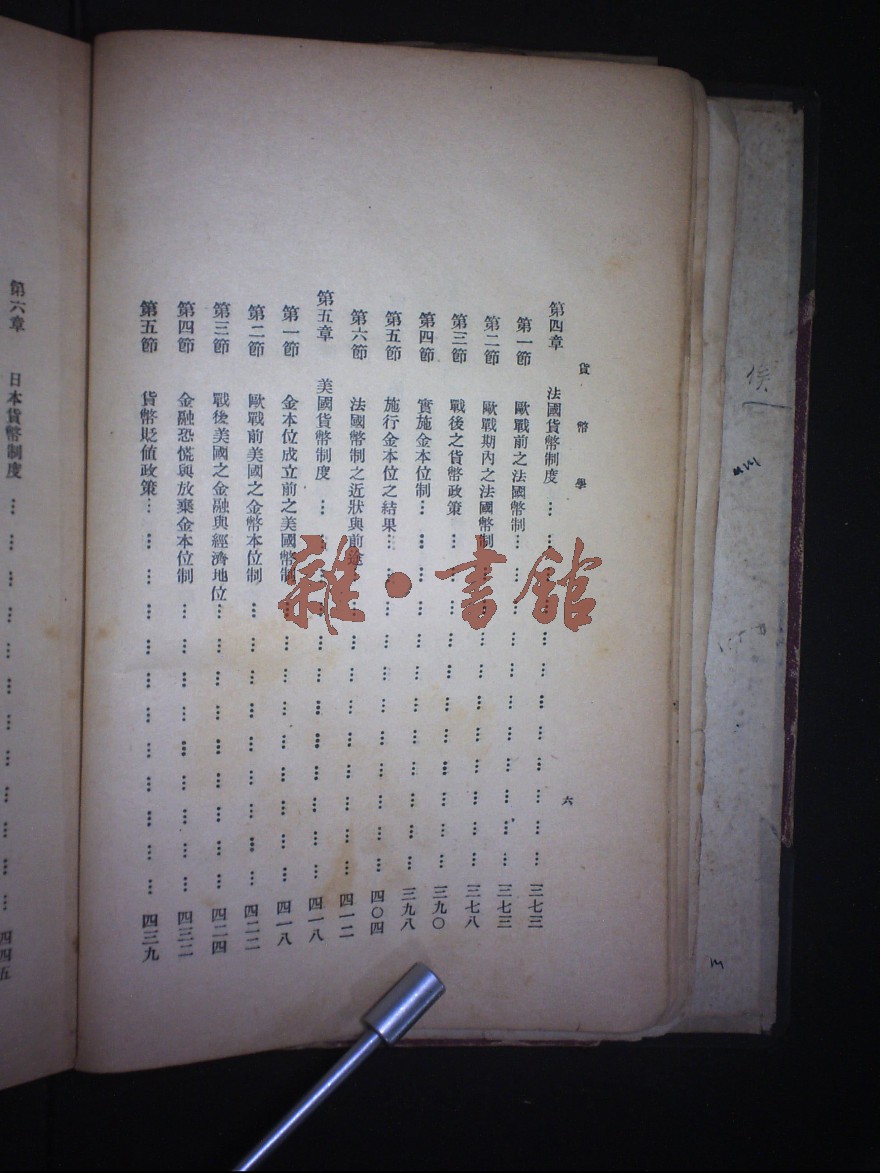 貨幣學 六
第四章 法國貨幣制度 … … … … … … … … … … 三七三
第一節 歐戰前之法國幣制 … … … … … … … … … 三七三
第二節 歐戰期內之法國幣制 … … … … … … … … … 三七八
第三節 戰後之貨幣政策 … … … … … … … … … … 三九〇
第四節 實施金本位制 … … … … … … … … … … … 三九八
第五節 施行金本位之結果 … … … … … … … … … 四〇四
第六節 法國幣制之近狀與前途 … … … … … … … … 四一二
第五章 美國貨幣制度 … … … … … … … … … … … 四一八
第一節 金本位成立前之美國幣制 … … … … … … … … 四一八
第二節 歐戰前美國之金幣本位制 … … … … … … … … 四二二
第三節 戰後美國之金融與經濟地位 … … … … … … … … 四二四
第四節 金融恐慌與放棄金本位制 … … … … … … … … 四三二
第五節 貨幣貶值政策 … … … … … … … … … … … 四三九
第六章 日本貨幣制度 … … … … … … … … … … … 四四五
雜·書館